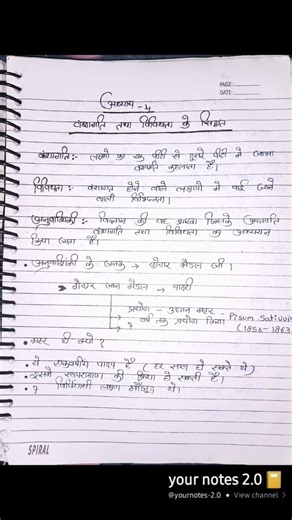 PAGE:
DATE:
अध्याय - 4
वंशागति तथा विविधता के सिद्धांत
वंशागति :- लक्षणों का एक पीढ़ी से दूसरे पीढ़ी में जाना
वंशागति कहलाता है।
विविधता :- वंशागत होने वाले लक्षणों में पाई जाने
वाली विभिन्नता।
आनुवंशिकी :- विज्ञान की वह शाखा जिसके अन्तर्गत
वंशागति तथा विविधता का अध्ययन
किया जाता है।
• आनुवंशिकी के जनक → ग्रेगर मेंडल जी।
ग्रेगर जान मेंडल → पादरी
→ प्रयोग - उद्यान मटर - Pisum Sativum
→ 7 वर्ष तक प्रयोग किया (1856-1863
• मटर ही क्यों ?
• ये एकवर्षीय पादप है ( हर साल हो सकते थे)
• इसमें परपरागण की क्रिया हो सकती है।
• 7 विपर्यासी लक्षण मौजूद थे।
SPIRAL
your notes 2.0
@yournotes-2.0 • View channel >